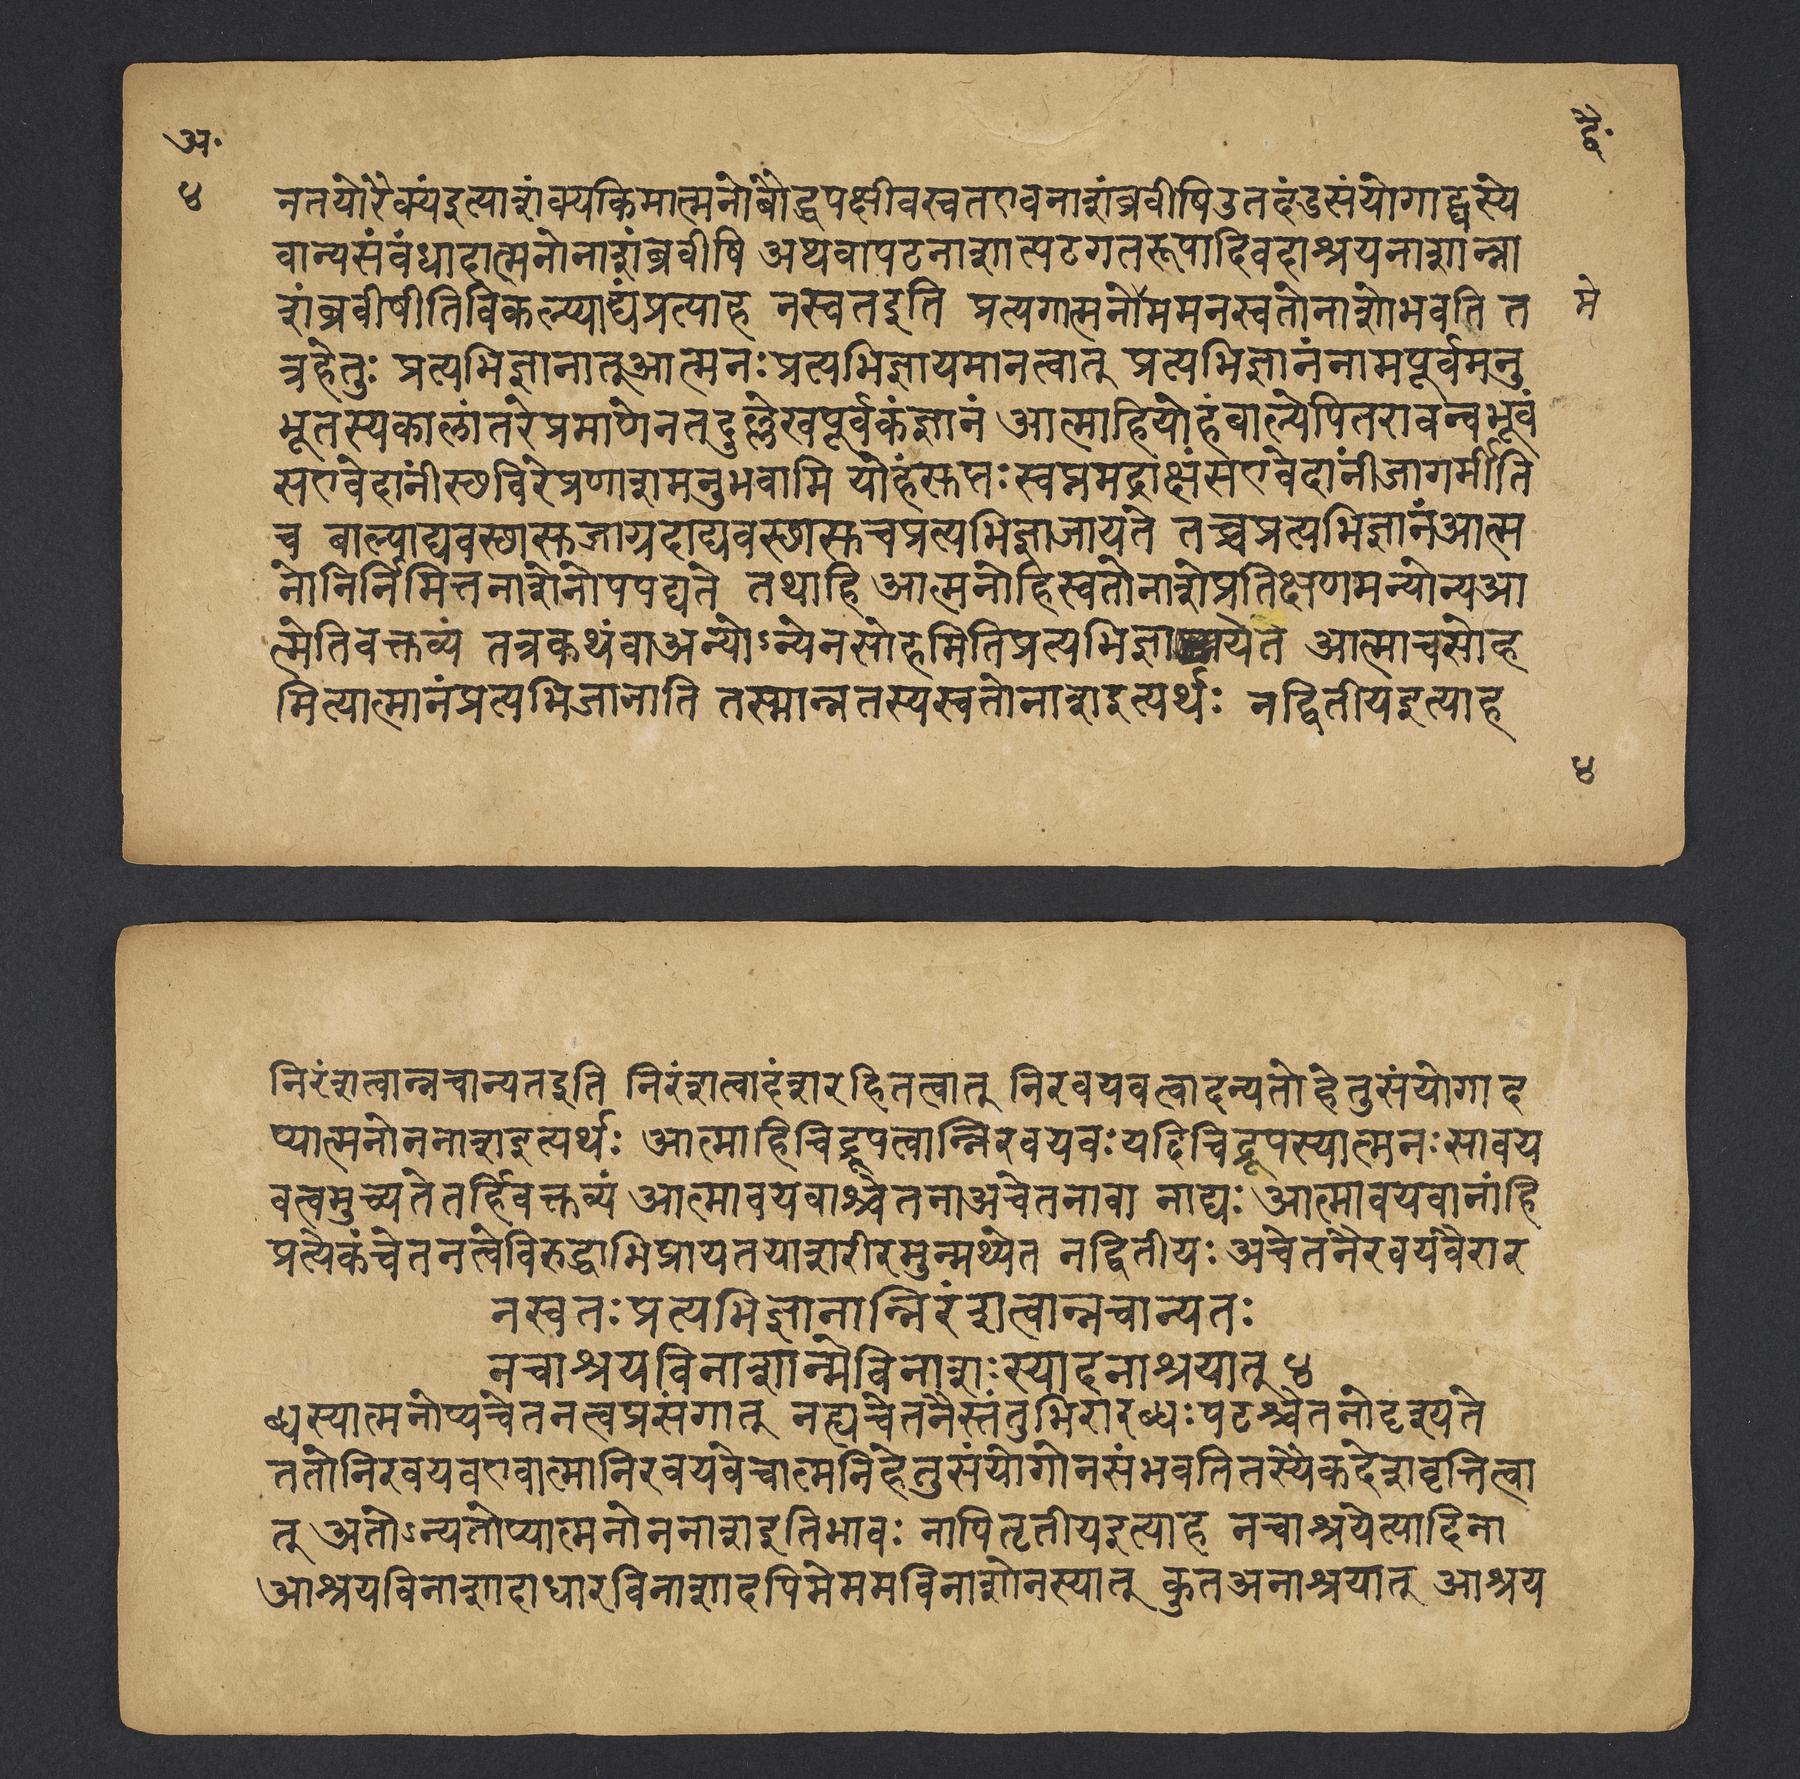 अ॰
द्वै॰
४
नतयोरैक्यंइत्याशंक्यकिमात्मनोबौद्धपक्षीवस्वतएवनाशंब्रवीषिउतदंडसंयोगाद्घटस्ये
वान्यसंबंधादात्मनोनाशंब्रवीषि अथवापटनाशात्पटगतरूपादिवदाश्रयनाशान्ना
शंब्रवीषीतिविकल्प्याद्यंप्रत्याह नस्वतइति प्रत्यगात्मनोममनस्वतोनाशोभवति त
मे
त्रहेतुः प्रत्यभिज्ञानात्आत्मनःप्रत्यभिज्ञायमानत्वात् प्रत्यभिज्ञानंनामपूर्वमनु
भूतस्यकालांतरेप्रमाणेनतदुल्लेखपूर्वकंज्ञानं आत्माहियोहंबाल्येपितरावन्वभूवं
सएवेदानींस्थविरेप्रणाशमनुभवामि योहंसुप्तःस्वप्नमद्राक्षंसएवेदानींजागर्मीति
च बाल्याद्यवस्थासुजाग्रदाद्यवस्थासुचप्रत्यभिज्ञाजायते तच्चप्रत्यभिज्ञानंआत्म
नोनिर्निमित्तनाशेनोपपद्यते तथाहि आत्मनोहिस्वतोनाशेप्रतिक्षणमन्योन्यआ
त्मेतिवक्तव्यं तत्रकथंवाअन्योऽन्येनसोहमितिप्रत्यभिज्ञायेत आत्माचसोह
मित्यात्मानंप्रत्यभिजानाति तस्मान्नतस्यस्वतोनाशइत्यर्थः नद्वितीयइत्याह
४
निरंशत्वान्नचान्यतइति निरंशत्वादंशरहितत्वात् निरवयवत्वादन्यतोहेतुसंयोगाद
प्यात्मनोननाशइत्यर्थः आत्माहिचिद्रूपत्वान्निरवयवःयदिचिद्रूपस्यात्मनःसावय
वत्वमुच्यतेतर्हिवक्तव्यं आत्मावयवाश्चेतनाअचेतनावा नाद्यः आत्मावयवानांहि
प्रत्येकंचेतनत्वेविरुद्धाभिप्रायतयाशरीरमुन्मथ्येत नद्वितीयः अचेतनैरवयवैरार
नस्वतःप्रत्यभिज्ञानान्निरंशत्वान्नचान्यतः
नचाश्रयविनाशान्मेविनाशःस्यादनाश्रयात् ४
ब्धस्यात्मनोप्यचेतनत्वप्रसंगात् नह्यचेतनैस्तंतुभिरारब्धःपटश्चेतनोदृश्यते
ततोनिरवयवएवात्मानिरवयवेचात्मनिहेतुसंयोगोनसंभवतितस्यैकदेशवृत्तित्वा
त् अतोऽन्यतोप्यात्मनोननाशइतिभावः नापितृतीयइत्याह नचाश्रयेत्यादिना
आश्रयविनाशादाधारविनाशादपिमेममविनाशोनस्यात् कुतअनाश्रयात् आश्रय